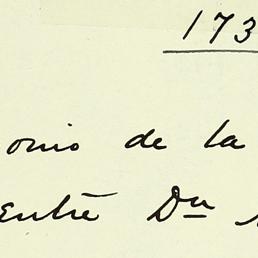 173
onio de la
Entre Dn